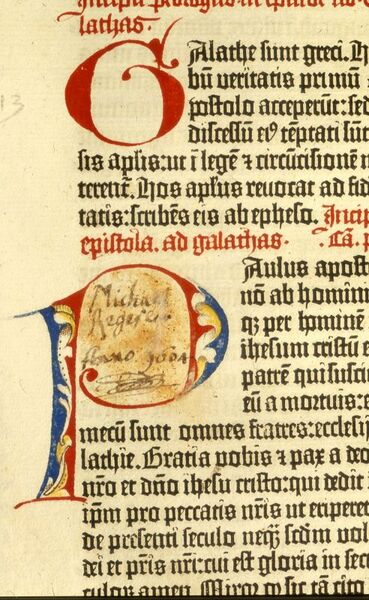 lathas.
Galathe sunt greci. H
bū veritatis primū
postolo acceperūt: sed
discessū eiꝰ tēptati sūt
sis apłis: ut ī legē ⁊ circūcisionē
terent̄. Hos apłus reuocat ad fid
tatis: scribēs eis ab epheso. Incip
epistola. ad galathas. Ca. p
Paulus apost
nō ab homin
qꝫ per hominē
ihesum cristū e
patrē qui susci
eū a mortuis: e
mecū sunt omnes fratres: ecclesij
lathie. Gratia vobis ⁊ pax a deo
nr̄o et dn̄o ihesu cristo: qui dedit
ip̄m pro peccatis nr̄is ut eriperet
de presenti seculo neqꝫ scd̄m vol
dei et pr̄is nr̄i: cui est gloria in sec
culoꝝ amen. Miroꝛ ꝙ sic tā cito
13
Michael
Anno 1601